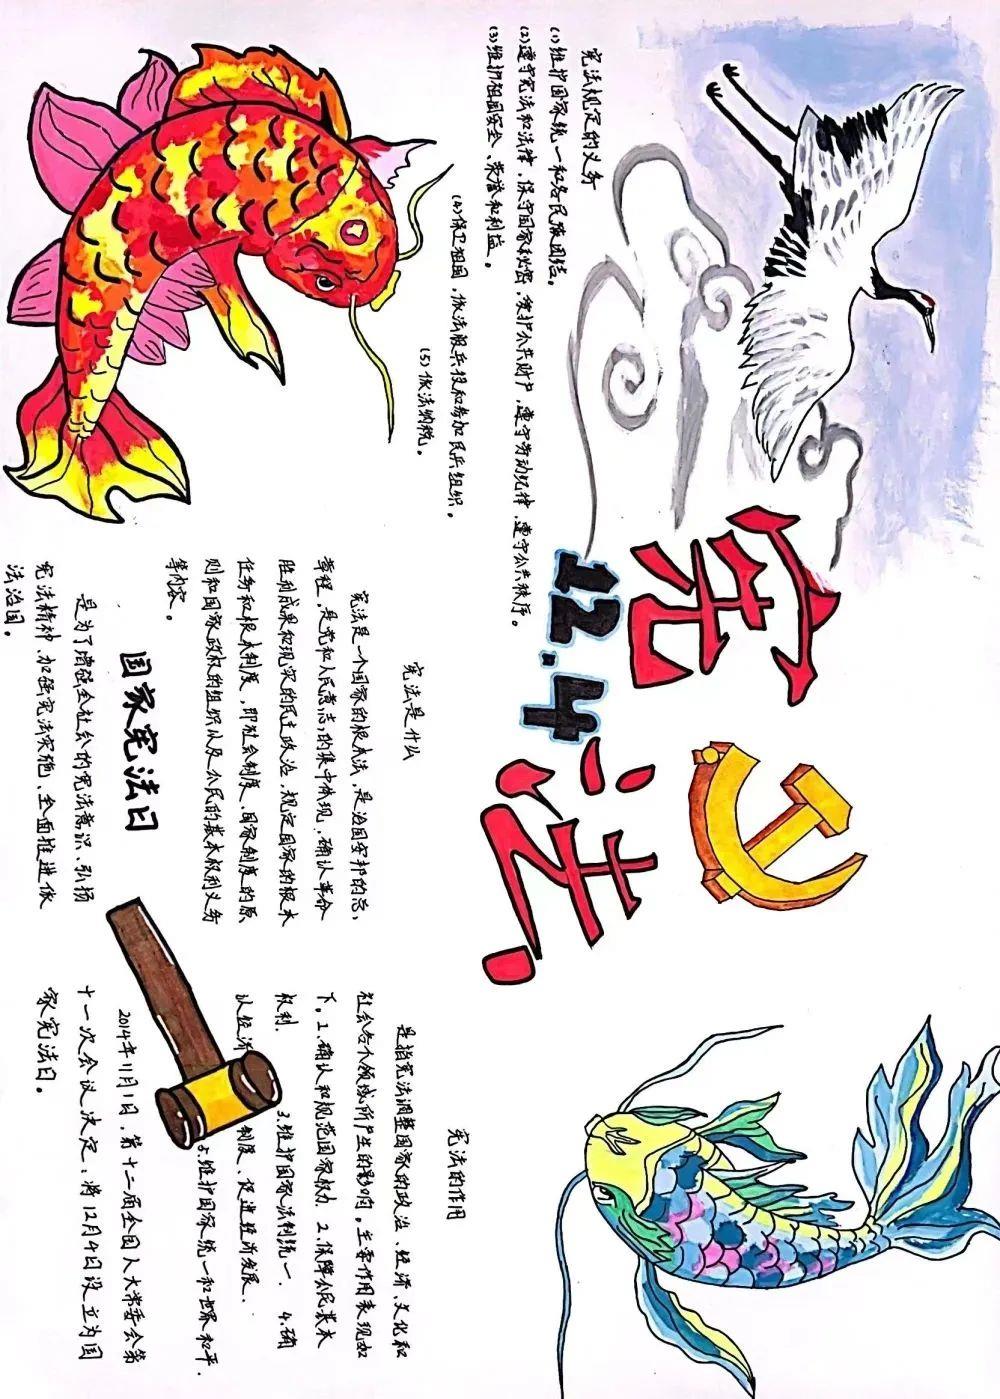 宪法
12.4
宪法规定的义务
(1)维护国家统一和各民族团结。
(2)遵守宪法和法律,保守国家秘密,爱护公共财产,遵守劳动纪律,遵守公共秩序。
(3)维护祖国安全、荣誉和利益。
(4)保卫祖国,依法服兵役和参加民兵组织。
(5)依法纳税。
宪法是什么
宪法是一个国家的根本法,是治国安邦的总
章程,是党和人民意志的集中体现,确认革命
胜利成果和现实的民主政治,规定国家的根本
任务和根本制度,即社会制度、国家制度的原
则和国家政权的组织以及公民的基本权利义务
等内容。
宪法的作用
是指宪法调整国家的政治、经济、文化和
社会各个领域所产生的影响。主要作用表现如
下。1.确认和规范国家权力 2.保障公民基本
权利. 3.维护国家法制统一. 4.确
认经济制度、促进经济发展.
5.维护国家统一和世界和平.
国家宪法日
是为了增强全社会的宪法意识、弘扬
宪法精神、加强宪法实施、全面推进依
法治国。
2014年11月1日,第十二届全国人大常委会第
十一次会议决定,将12月4日设立为国
家宪法日。